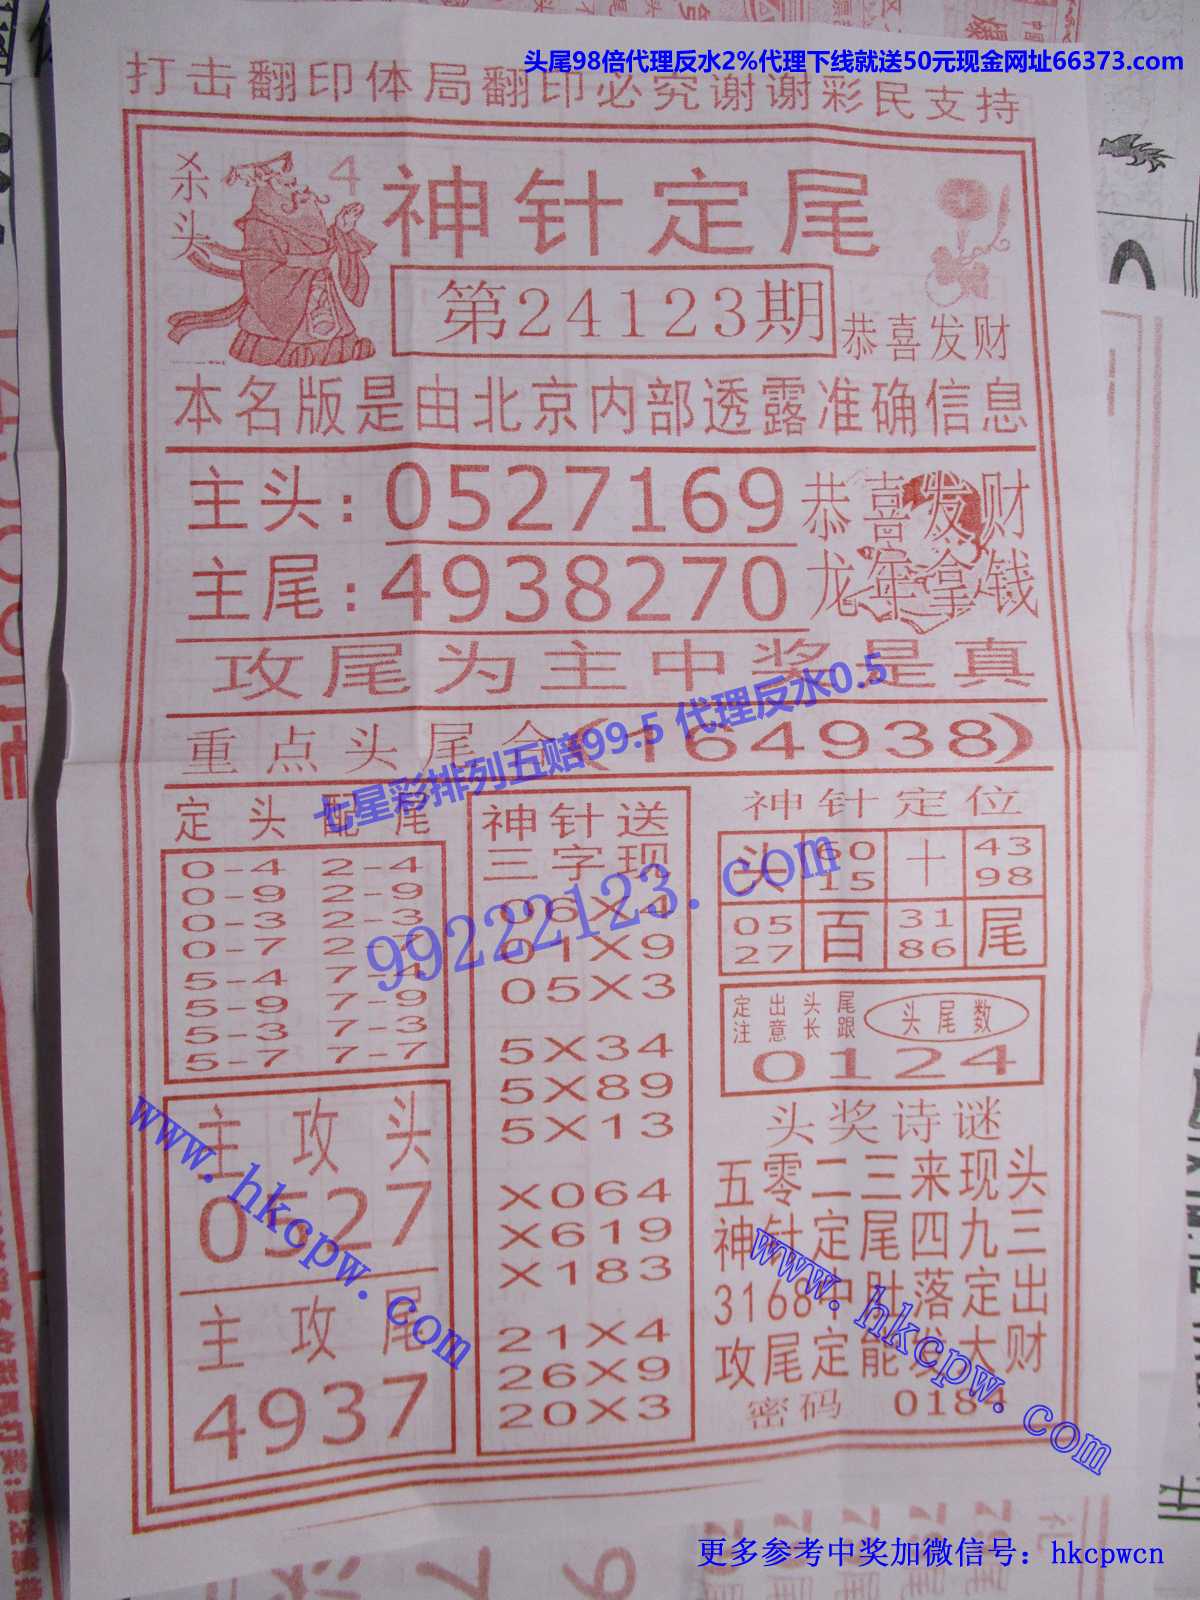 头尾98倍代理反水2%代理下线就送50元现金网址66373.com
打击翻印体局翻印必究谢谢彩民支持
杀头
4
神针定尾
第24123期
恭喜发财
本名版是由北京内部透露准确信息
主头:0527169
恭喜发财
主尾:4938270
龙年拿钱
攻尾为主中奖是真
重点头尾合(164938)
七星彩排列五赔99.5 代理反水0.5
99222123.com
定头配尾
0-4 2-4
0-9 2-9
0-3 2-3
0-7 2-7
5-4 7-4
5-9 7-9
5-3 7-3
5-7 7-7
主攻头
0527
主攻尾
4937
神针送
三字现
06X4
01X9
05X3
5X34
5X89
5X13
X064
X619
X183
21X4
26X9
20X3
神针定位
头 60 十 43
15 98
05 百 31 尾
27 86
定出头尾
注意长跟
头尾数
0124
头奖诗谜
五零二三来现头
神针定尾四九三
3168中肚落定出
攻尾定能发大财
密码 0184
www.hkcpw.com
www.hkcpw.com
更多参考中奖加微信号：hkcpwcn